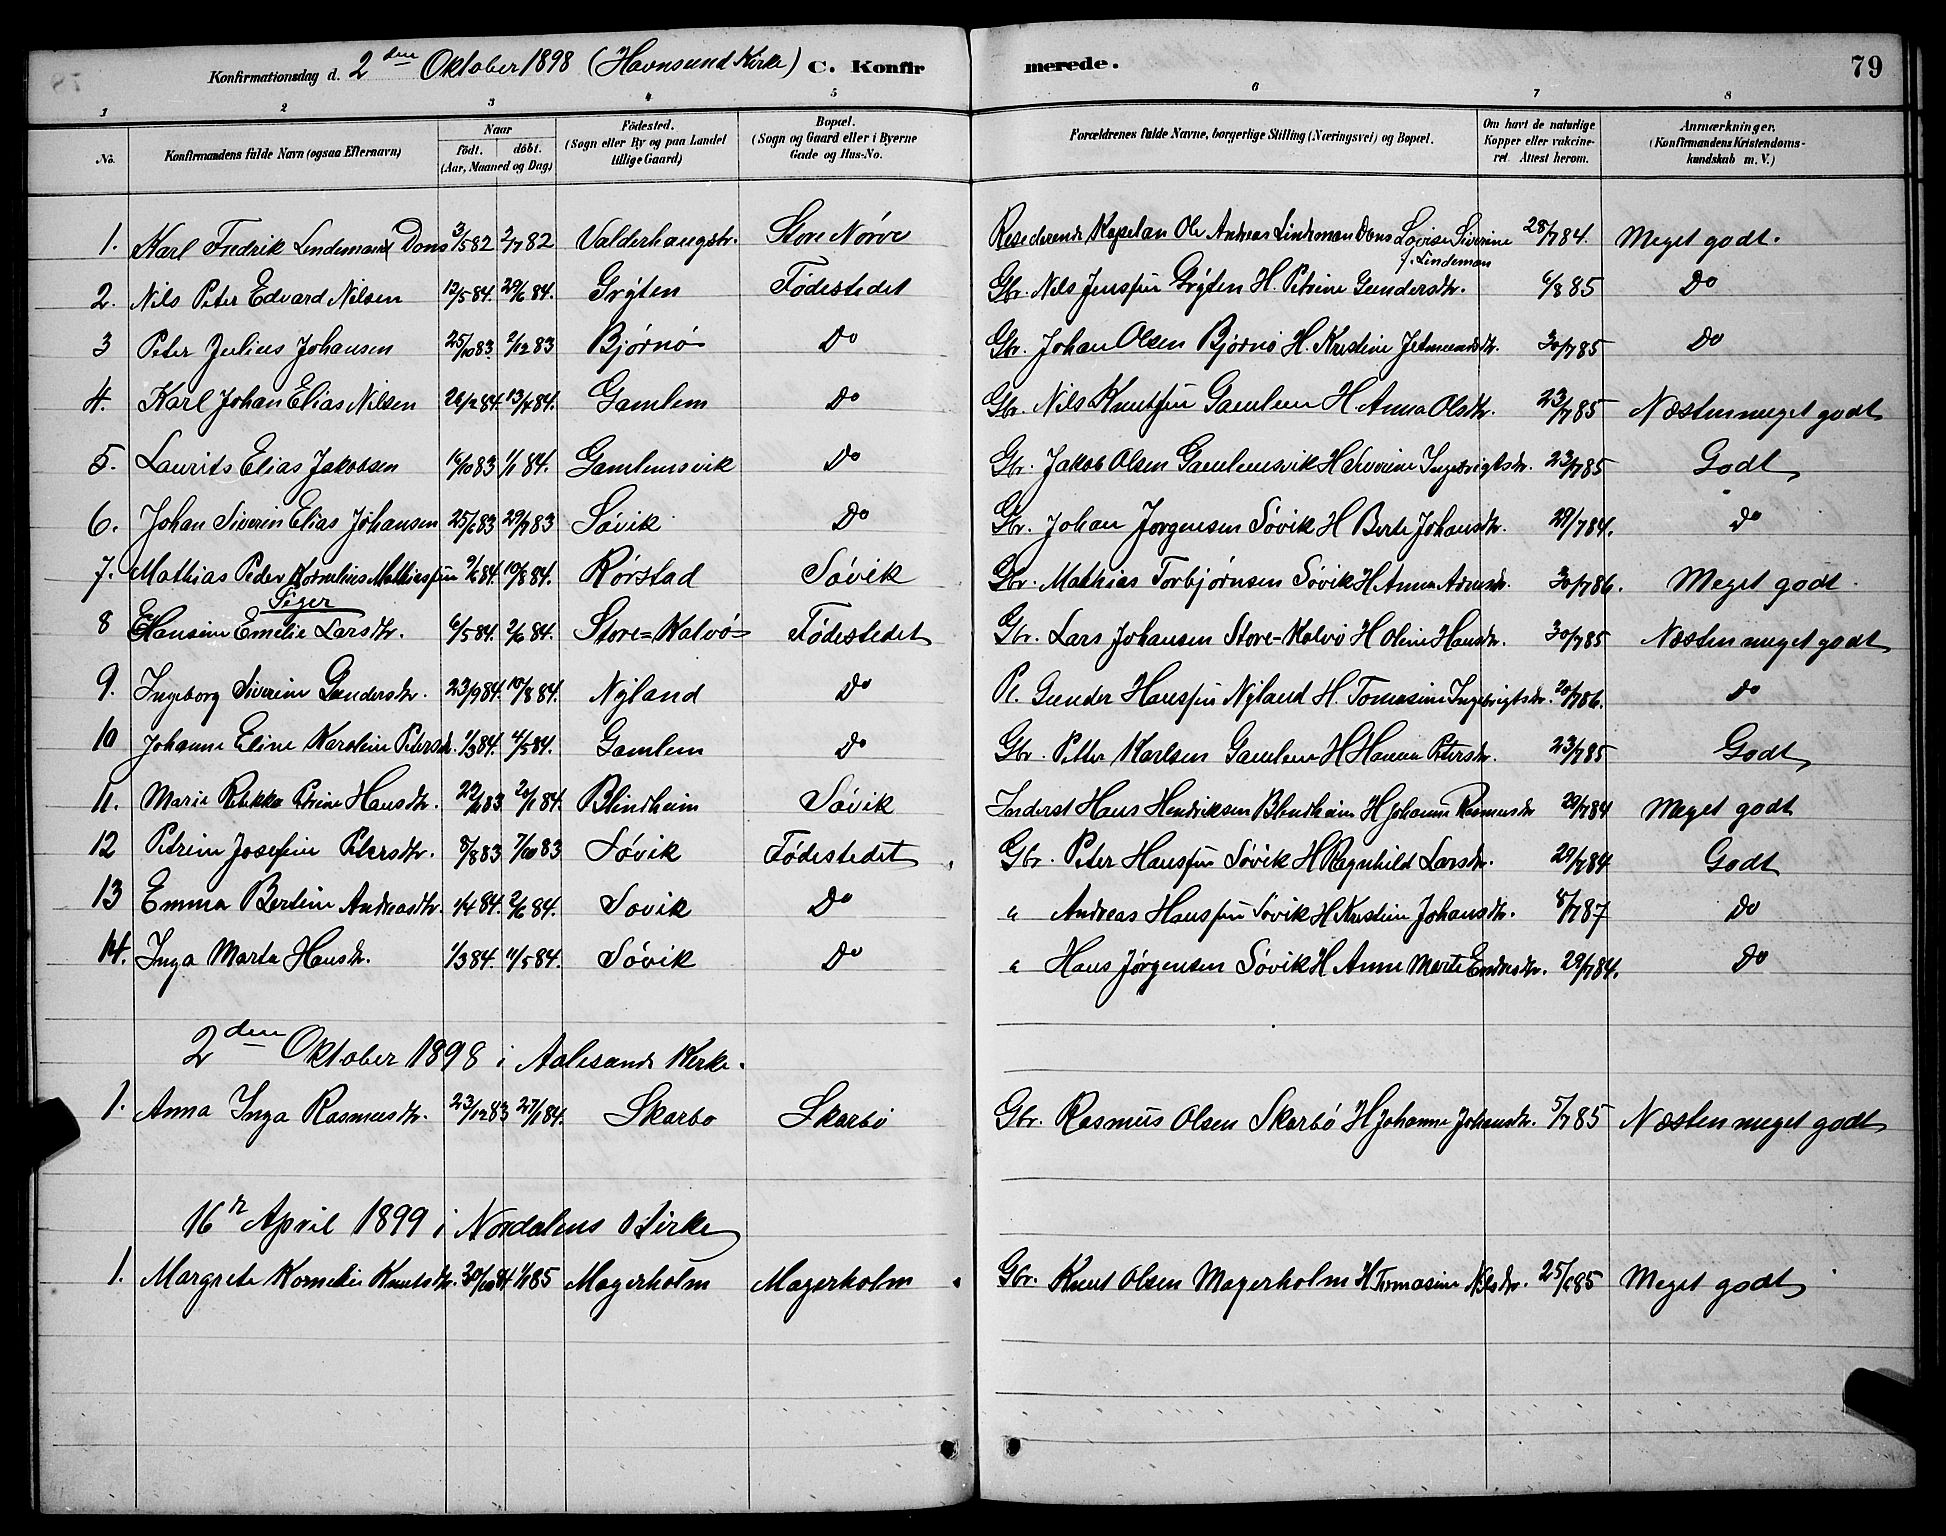 Konfirmationsdag d. 2den Oktober 1898 (Havnsund Kirke) C. Konfirmerede. 79
1 2 3 4 5 6 7 8
No. Konfirmandens fulde Navn (ogsaa Efternavn) Naar født. døbt. (Aar, Maaned og Dag) Födested. (Sogn eller By og paa Landet tillige Gaard) Bopæl. (Sogn og Gaard eller i Byerne Gade og Hus-No. Forældrenes fulde Navne, borgerlige Stilling (Næringsvei) og Bopæl. Om havt de naturlige Kopper eller vakcineret. Attest herom. Anmærkninger. (Konfirmandens Kristendomskundskab m. V.)
1. Karl Fredrik Lindeman Dons 3/5 82 2/7 82 Valderhaugstr. Store Nørve Residerende Kapelan Ole Andreas Lindeman Dons Lovise Siverine f. Lindeman 28/7 84. Meget godt.
2. Nils Peter Edvard Nilsen 13/5 84. 29/6 84. Grýten Fødestedet Gbr. Nils Jenssen Grýten H. Petrine Gundersdtr. 6/8 85 Do
3 Peter Julius Johansen 25/10 83. 2/12 83 Bjørnø Do Gbr. Johan Olsen Bjørnø H. Kristine Jetmundsdtr. 30/7 85 Do
4. Karl Johan Elias Nilsen 26/2 84. 13/4 84. Gamlem Do Gbr. Nils Knutsen Gamlem H Anna Olsdtr. 23/7 85 Næsten meget godt
5. Laurits Elias Jakobsen 16/10 83 1/1 84. Gamlemsvik Do Gbr. Jakob Olsen Gamlemsvik H Severine Ingebrigtsdr. 23/7 85 Godt
6. Johan Siverin Elias Johansen 25/6 83 29/7 83 Søvik Do Gbr. Johan Jørgensen Søvik H Berte Johansdtr. 29/7 84. Do
7. Mathias Peder Kornelius Mathiassen 9/6 84. 10/8 84. Rørstad Søvik Gbr. Mathias Torbjørnsen Søvik H Anna Arnesdr. 30/7 86. Meget godt.
Siger
8 Hansine Emelie Larsdtr. 6/5 84. 2/6 84. Store=Kalvø= Fødestedet Gbr. Lars Johansen Store-Kalvø H Oline Hansdtr. 30/7 85 Næsten meget godt
9. Ingeborg Siverine Gundersdtr. 23/9 84. 10/8 84. Nýland Do Pl. Gunder Hanssen Nýland H. Tomasine Ingebrigtsdr. 20/7 86. Do
10 Johanne Eline Karoline Petersdr. 1/3 84. 4/5 84. Gamlem Do Gbr. Petter Karlsen Gamlem H Hanna Petersdr. 23/7 85 Godt
11. Marie Rebekka Petrine Hansdtr. 20/1 84. Blindheim Søvik Inderst Hans Hendriksen Blindheim H Johanne Rasmusdtr 29/7 84 Meget godt
12 Petrine Josefine Petersdtr. 8/8 83 7/10 83 Søvik Fødestedet Gbr. Peter Hanssen Søvik H Ragnhild Larsdtr. 29/7 84 Godt
13 Emma Bertine Andreasdtr. 1/4 84. 2/6 84. Søvik Do " Andreas Hanssen Søvik H Kristine Johansdtr. 8/7 87 Do
14. Inga Marta Hansdr. 1/3 84. 11/5 84. Søvik Do " Hans Jørgensen Søvik H Anne Marte Endresdtr. 29/7 84. Do
2den Oktober 1898 i Aalesunds Kirke.
1. Anna Inga Rasmusdtr. 23/12 83 27/1 84. Skarbø Skarbø Gbr. Rasmus Olsen Skarbø H Johanne Johansdtr. 5/7 85 Næsten meget godt
16n April 1899 i Nordalens Kirke
1. Margrete Kornelie Knutsdtr. 30/10 84 1/1 85 Magerholm Magerholm Gbr. Knut Olsen Magerholm H Tomasine Nilsdtr. 25/6 85 Meget godt